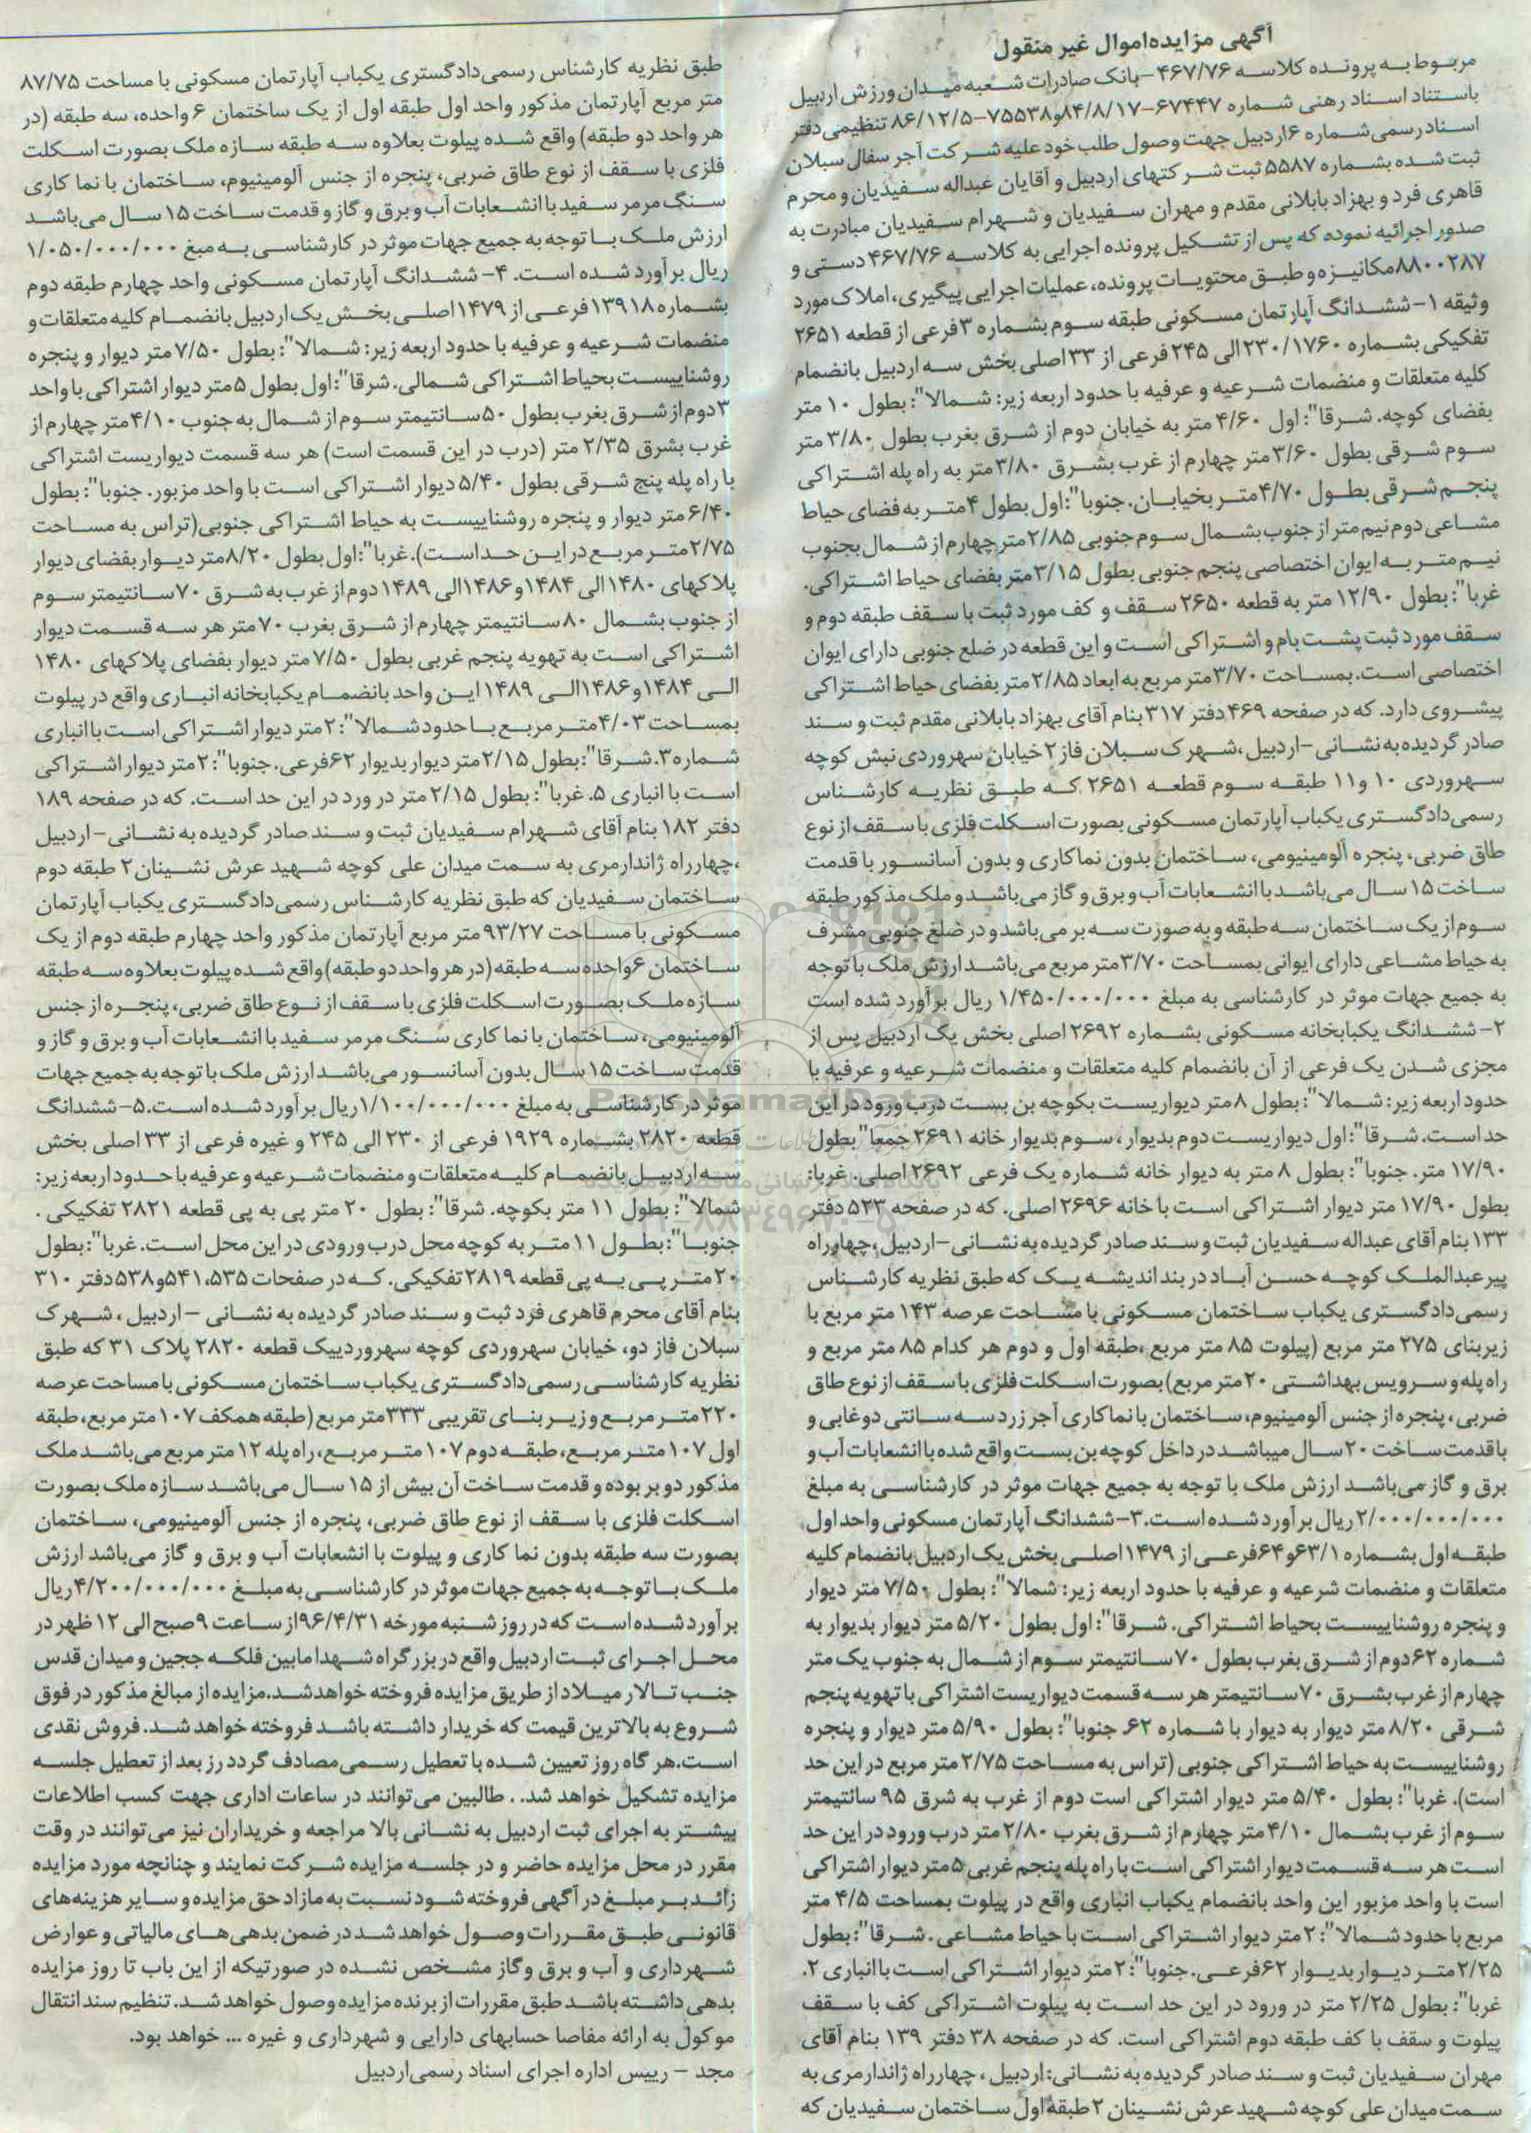 آگهی مزایده‌اموال غیر منقول
مربوط به پرونده کلاسه ۴۶۷/۷۶-بانک صادرات شعبه میدان ورزش اردبیل
باستناد اسناد رهنی شماره ۶۷۴۴۷-۸۴/۸/۱۷و۷۵۵۳۸-۸۶/۱۲/۵ تنظیمی دفتر
اسناد رسمی شماره ۶اردبیل جهت وصول طلب خود علیه شرکت آجر سفال سبلان
ثبت شده بشماره ۵۵۸۷ ثبت شرکتهای اردبیل و آقایان عبداله سفیدیان و محرم
قاهری فرد و بهزاد بابلانی مقدم و مهران سفیدیان و شهرام سفیدیان مبادرت به
صدور اجرائیه نموده که پس از تشکیل پرونده اجرایی به کلاسه ۴۶۷/۷۶ دستی و
۸۸۰۰۲۸۷مکانیزه و طبق محتویات پرونده، عملیات اجرایی پیگیری، املاک مورد
وثیقه ۱- ششدانگ آپارتمان مسکونی طبقه سوم بشماره ۳فرعی از قطعه ۲۶۵۱
تفکیکی بشماره ۲۳۰/۱۷۶۰الی ۲۴۵ فرعی از ۳۳اصلی بخش سه اردبیل بانضمام
کلیه متعلقات و منضمات شرعیه و عرفیه با حدود اربعه زیر: شمالا": بطول ۱۰ متر
بفضای کوچه. شرقا": اول ۴/۶۰ متر به خیابان دوم از شرق بغرب بطول ۳/۸۰ متر
سوم شرقی بطول ۳/۶۰متر چهارم از غرب بشرق ۳/۸۰متر به راه پله اشتراکی
پنجم شرقی بطول ۴/۷۰متر بخیابان. جنوبا": اول بطول ۴متر به فضای حیاط
مشاعی دوم نیم متر از جنوب بشمال سوم جنوبی ۲/۸۵متر چهارم از شمال بجنوب
نیم متر به ایوان اختصاصی پنجم جنوبی بطول ۳/۱۵متر بفضای حیاط اشتراکی.
غربا": بطول ۱۲/۹۰ متر به قطعه ۲۶۵۰ سقف و کف مورد ثبت با سقف طبقه دوم و
سقف مورد ثبت پشت بام و اشتراکی است و این قطعه در ضلع جنوبی دارای ایوان
اختصاصی است. بمساحت ۳/۷۰متر مربع به ابعاد ۲/۸۵متر بفضای حیاط اشتراکی
پیشروی دارد. که در صفحه ۴۶۹دفتر ۳۱۷بنام آقای بهزاد بابلانی مقدم ثبت و سند
صادر گردیده به نشانی -اردبیل، شهرک سبلان فاز ۲ خیابان سهروردی نبش کوچه
سهروردی ۱۰ و۱۱ طبقه سوم قطعه ۲۶۵۱ که طبق نظریه کارشناس
رسمی‌دادگستری یکباب آپارتمان مسکونی بصورت اسکلت فلزی با سقف از نوع
طاق ضربی، پنجره آلومینیومی، ساختمان بدون نماکاری و بدون آسانسور با قدمت
ساخت ۱۵ سال می‌باشد با انشعابات آب و برق و گاز می‌باشد و ملک مذکور طبقه
سوم از یک ساختمان سه طبقه و به صورت سه بر می‌باشد و در ضلع جنوبی مشرف
به حیاط مشاعی دارای ایوانی بمساحت ۳/۷۰متر مربع می‌باشد ارزش ملک با توجه
به جمیع جهات موثر در کارشناسی به مبلغ ۱/۴۵۰/۰۰۰/۰۰۰ ریال برآورد شده است
۲- ششدانگ یکبابخانه مسکونی بشماره ۲۶۹۲ اصلی بخش یک اردبیل پس از
مجزی شدن یک فرعی از آن بانضمام کلیه متعلقات و منضمات شرعیه و عرفیه با
حدود اربعه زیر: شمالا": بطول ۸متر دیواریست بکوچه بن بست درب ورود در این
حد است. شرقا": اول دیواریست دوم بدیوار، سوم بدیوار خانه ۲۶۹۱ جمعا" بطول
۱۷/۹۰ متر. جنوبا": بطول ۸ متر به دیوار خانه شماره یک فرعی ۲۶۹۲ اصلی. غربا:
بطول ۱۷/۹۰ متر دیوار اشتراکی است با خانه ۲۶۹۶ اصلی. که در صفحه ۵۲۳ دفتر
۱۳۳ بنام آقای عبداله سفیدیان ثبت و سند صادر گردیده به نشانی -اردبیل، چهارراه
پیرعبدالملک کوچه حسن آباد در بند اندیشه یک که طبق نظریه کارشناس
رسمی‌دادگستری یکباب ساختمان مسکونی با مساحت عرصه ۱۴۳ متر مربع با
زیربنای ۲۷۵ متر مربع (پیلوت ۸۵ متر مربع، طبقه اول و دوم هر کدام ۸۵ متر مربع و
راه پله و سرویس بهداشتی ۲۰متر مربع) بصورت اسکلت فلزی با سقف از نوع طاق
ضربی، پنجره از جنس آلومینیوم، ساختمان با نماکاری آجر زرد سه سانتی دوغابی و
با قدمت ساخت ۲۰سال میباشد در داخل کوچه بن بست واقع شده با انشعابات آب و
برق و گاز می‌باشد ارزش ملک با توجه به جمیع جهات موثر در کارشناسی به مبلغ
۲/۰۰۰/۰۰۰/۰۰۰ ریال برآورد شده است. ۳- ششدانگ آپارتمان مسکونی واحد اول
طبقه اول بشماره ۶۳/۱و۶۴فرعی از ۱۴۷۹ اصلی بخش یک اردبیل بانضمام کلیه
متعلقات و منضمات شرعیه و عرفیه با حدود اربعه زیر: شمالا": بطول ۷/۵۰ متر دیوار
و پنجره روشناییست بحیاط اشتراکی. شرقا": اول بطول ۵/۲۰ متر دیوار بدیوار به
شماره ۶۲دوم از شرق بغرب بطول ۷۰سانتیمتر سوم از شمال به جنوب یک متر
چهارم از غرب بشرق ۷۰سانتیمتر هر سه قسمت دیواریست اشتراکی با تهویه پنجم
شرقی ۸/۲۰ متر دیوار به دیوار با شماره ۶۲. جنوبا": بطول ۵/۹۰ متر دیوار و پنجره
روشناییست به حیاط اشتراکی جنوبی (تراس به مساحت ۲/۷۵ متر مربع در این حد
است). غربا": بطول ۵/۴۰ متر دیوار اشتراکی است دوم از غرب به شرق ۹۵ سانتیمتر
سوم از غرب بشمال ۴/۱۰ متر چهارم از شرق بغرب ۲/۸۰متر درب ورود در این حد
است هر سه قسمت دیوار اشتراکی است با راه پله پنجم غربی ۵متر دیوار اشتراکی
است با واحد مزبور این واحد بانضمام یکباب انباری واقع در پیلوت بمساحت ۴/۵ متر
مربع با حدود شمالا": ۲متر دیوار اشتراکی است با حیاط مشاعی. شرقا": بطول
۲/۲۵متر دیوار بدیوار ۶۲فرعی. جنوبا": ۲متر دیوار اشتراکی است با انباری ۲.
غربا": بطول ۲/۲۵ متر در ورود در این حد است به پیلوت اشتراکی کف با سقف
پیلوت و سقف با کف طبقه دوم اشتراکی است. که در صفحه ۳۸ دفتر ۱۳۹ بنام آقای
مهران سفیدیان ثبت و سند صادر گردیده به نشانی: اردبیل، چهارراه ژاندارمری به
سمت میدان علی کوچه شهید عرش نشینان ۲طبقه اول ساختمان سفیدیان که
طبق نظریه کارشناس رسمی‌دادگستری یکباب آپارتمان مسکونی با مساحت ۸۷/۷۵
متر مربع آپارتمان مذکور واحد اول طبقه اول از یک ساختمان ۶ واحده، سه طبقه (در
هر واحد دو طبقه) واقع شده پیلوت بعلاوه سه طبقه سازه ملک بصورت اسکلت
فلزی با سقف از نوع طاق ضربی، پنجره از جنس آلومینیوم، ساختمان با نما کاری
سنگ مرمر سفید با انشعابات آب و برق و گاز و قدمت ساخت ۱۵ سال می‌باشد
ارزش ملک با توجه به جمیع جهات موثر در کارشناسی به مبغ ۱/۰۵۰/۰۰۰/۰۰۰
ریال برآورد شده است. ۴- ششدانگ آپارتمان مسکونی واحد چهارم طبقه دوم
بشماره ۱۳۹۱۸فرعی از ۱۴۷۹ اصلی بخش یک اردبیل بانضمام کلیه متعلقات و
منضمات شرعیه و عرفیه با حدود اربعه زیر: شمالا": بطول ۷/۵۰ متر دیوار و پنجره
روشناییست بحیاط اشتراکی شمالی. شرقا": اول بطول ۵متر دیوار اشتراکی با واحد
۳دوم از شرق بغرب بطول ۵۰سانتیمتر سوم از شمال به جنوب ۴/۱۰متر چهارم از
غرب بشرق ۲/۳۵ متر (درب در این قسمت است) هر سه قسمت دیواریست اشتراکی
با راه پله پنج شرقی بطول ۵/۴۰ دیوار اشتراکی است با واحد مزبور. جنوبا": بطول
۶/۴۰متر دیوار و پنجره روشناییست به حیاط اشتراکی جنوبی(تراس به مساحت
۲/۷۵متر مربع در این حد است). غربا": اول بطول ۸/۲۰متر دیوار بفضای دیوار
پلاکهای ۱۴۸۰الی ۱۴۸۴ و۱۴۸۶الی ۱۴۸۹ دوم از غرب به شرق ۷۰سانتیمتر سوم
از جنوب بشمال ۸۰سانتیمتر چهارم از شرق بغرب ۷۰ متر هر سه قسمت دیوار
اشتراکی است به تهویه پنجم غربی بطول ۷/۵۰ متر دیوار بفضای پلاکهای ۱۴۸۰
الی ۱۴۸۴و۱۴۸۶الی ۱۴۸۹ این واحد بانضمام یکبابخانه انباری واقع در پیلوت
بمساحت ۴/۰۳متر مربع با حدود شمالا": ۲متر دیوار اشتراکی است با انباری
شماره ۳. شرقا": بطول ۲/۱۵متر دیوار بدیوار ۶۲فرعی. جنوبا": ۲متر دیوار اشتراکی
است با انباری ۵. غربا": بطول ۲/۱۵ متر در ورد در این حد است. که در صفحه ۱۸۹
دفتر ۱۸۲ بنام آقای شهرام سفیدیان ثبت و سند صادر گردیده به نشانی-اردبیل
،چهارراه ژاندارمری به سمت میدان علی کوچه شهید عرش نشینان۲ طبقه دوم
ساختمان سفیدیان که طبق نظریه کارشناس رسمی‌دادگستری یکباب آپارتمان
مسکونی با مساحت ۹۳/۲۷ متر مربع آپارتمان مذکور واحد چهارم طبقه دوم از یک
ساختمان ۶واحده سه طبقه (در هر واحد دو طبقه) واقع شده پیلوت بعلاوه سه طبقه
سازه ملک بصورت اسکلت فلزی با سقف از نوع طاق ضربی، پنجره از جنس
آلومینیومی، ساختمان با نما کاری سنگ مرمر سفید با انشعابات آب و برق و گاز و
قدمت ساخت ۱۵ سال بدون آسانسور می‌باشد ارزش ملک با توجه به جمیع جهات
موثر در کارشناسی به مبلغ ۱/۱۰۰/۰۰۰/۰۰۰ریال برآورد شده است.۵- ششدانگ
قطعه ۲۸۲۰ بشماره ۱۹۲۹ فرعی از ۲۳۰ الی ۲۴۵ و غیره فرعی از ۳۳ اصلی بخش
سه اردبیل بانضمام کلیه متعلقات و منضمات شرعیه و عرفیه با حدود اربعه زیر:
شمالا": بطول ۱۱ متر بکوچه. شرقا": بطول ۲۰ متر پی به پی قطعه ۲۸۲۱ تفکیکی.
جنوبا": بطول ۱۱متر به کوچه محل درب ورودی در این محل است. غربا": بطول
۲۰متر پی به پی قطعه ۲۸۱۹ تفکیکی. که در صفحات ۵۴۱،۵۳۵و۵۳۸ دفتر ۳۱۰
بنام آقای محرم قاهری فرد ثبت و سند صادر گردیده به نشانی - اردبیل، شهرک
سبلان فاز دو، خیابان سهروردی کوچه سهروردییک قطعه ۲۸۲۰ پلاک ۳۱ که طبق
نظریه کارشناسی رسمی‌دادگستری یکباب ساختمان مسکونی با مساحت عرصه
۲۲۰متر مربع و زیر بنای تقریبی ۳۳۳متر مربع (طبقه همکف ۱۰۷ متر مربع، طبقه
اول ۱۰۷ متر مربع، طبقه دوم ۱۰۷ متر مربع، راه پله ۱۲ متر مربع می‌باشد ملک
مذکور دو بر بوده و قدمت ساخت آن بیش از ۱۵ سال می‌باشد سازه ملک بصورت
اسکلت فلزی با سقف از نوع طاق ضربی، پنجره از جنس آلومینیومی، ساختمان
بصورت سه طبقه بدون نما کاری و پیلوت با انشعابات آب و برق و گاز می‌باشد ارزش
ملک با توجه به جمیع جهات موثر در کارشناسی به مبلغ ۴/۲۰۰/۰۰۰/۰۰۰ریال
برآورد شده است که در روز شنبه مورخه ۹۶/۴/۳۱از ساعت ۹صبح الی ۱۲ ظهر در
محل اجرای ثبت اردبیل واقع در بزرگراه شهدا مابین فلکه ججین و میدان قدس
جنب تالار میلاد از طریق مزایده فروخته خواهد شد.مزایده از مبالغ مذکور در فوق
شروع به بالاترین قیمت که خریدار داشته باشد فروخته خواهد شد. فروش نقدی
است.هر گاه روز تعیین شده با تعطیل رسمی‌مصادف گردد رز بعد از تعطیل جلسه
مزایده تشکیل خواهد شد. . طالبین می‌توانند در ساعات اداری جهت کسب اطلاعات
بیشتر به اجرای ثبت اردبیل به نشانی بالا مراجعه و خریداران نیز می‌توانند در وقت
مقرر در محل مزایده حاضر و در جلسه مزایده شرکت نمایند و چنانچه مورد مزایده
زائد بر مبلغ در آگهی فروخته شود نسبت به مازاد حق مزایده و سایر هزینه‌های
قانونی طبق مقررات وصول خواهد شد در ضمن بدهی‌های مالیاتی و عوارض
شهرداری و آب و برق و گاز مشخص نشده در صورتیکه از این باب تا روز مزایده
بدهی داشته باشد طبق مقررات از برنده مزایده وصول خواهد شد. تنظیم سند انتقال
موکول به ارائه مفاصا حسابهای دارایی و شهرداری و غیره ... خواهد بود.
مجد - رییس اداره اجرای اسناد رسمی‌اردبیل
ParsNamadData
۰۲۱-۸۸۳۴۹۶۷۰-۵